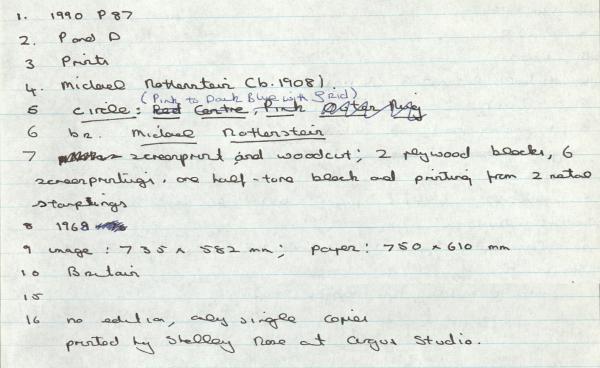 1. 1990 P 87
2. P and D
3 Prints
4. Michael Rothenstein (b. 1908)
(Pink to Dark Blue with Grid)
5 Circle: Red Centre, Pink Outer Ring
6 br. Michael Rothenstein
7 screenprint and woodcut; 2 plywood blocks, 6
screenprintings, one half-tone block and printing from 2 metal
stampings
8 1968
9 image: 735 x 582 mm; paper: 750 x 610 mm
10 Britain
15
16 no edition, only single copies
printed by Shelley Rose at Argus Studio.